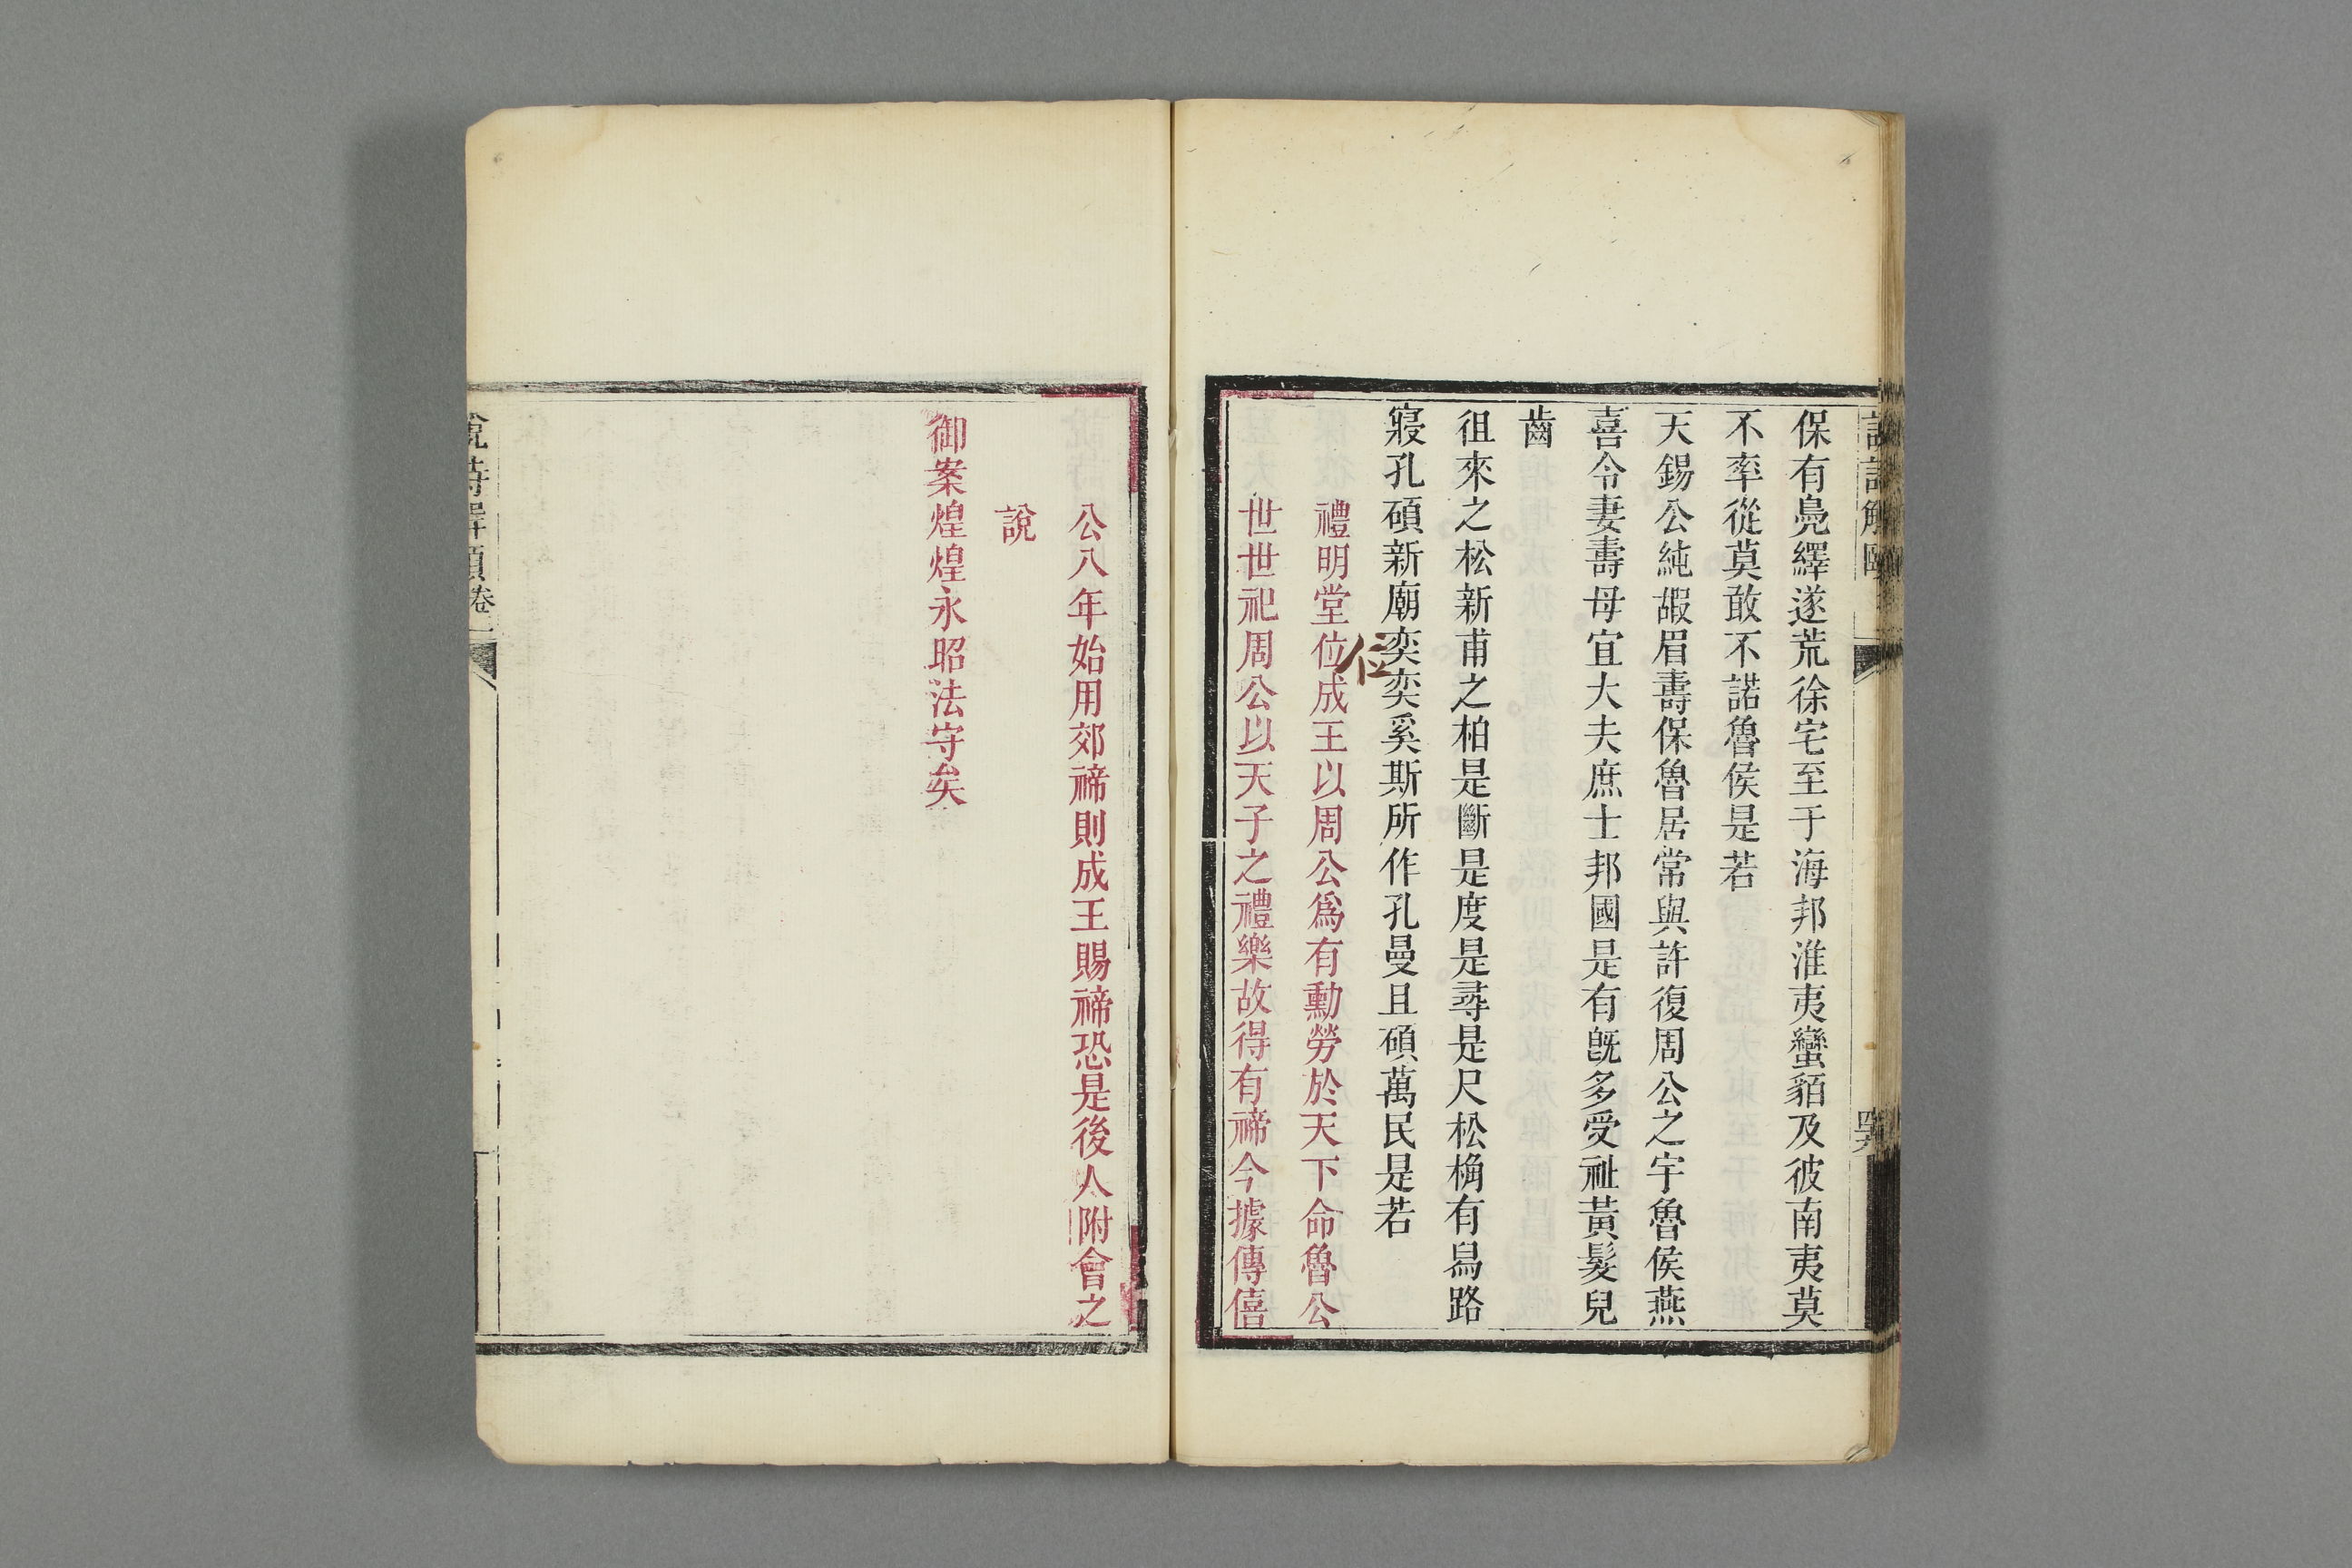 說詩解頤
四六
保有鳧繹遂荒徐宅至于海邦淮夷蠻貊及彼南夷莫
不率從莫敢不諾魯侯是若
天錫公純嘏眉壽保魯居常與許復周公之宇魯侯燕
喜令妻壽母宜大夫庶士邦國是有旣多受祉黃髮兒
齒
徂來之松新甫之柏是斷是度是尋是尺松桷有舄路
寢孔碩新廟奕奕奚斯所作孔曼且碩萬民是若
位
禮明堂位成王以周公爲有勳勞於天下命魯公
世世祀周公以天子之禮樂故得有禘今據傳僖
公八年始用郊禘則成王賜禘恐是後人附會之
說
御案煌煌永昭法守矣
說詩解頤卷一